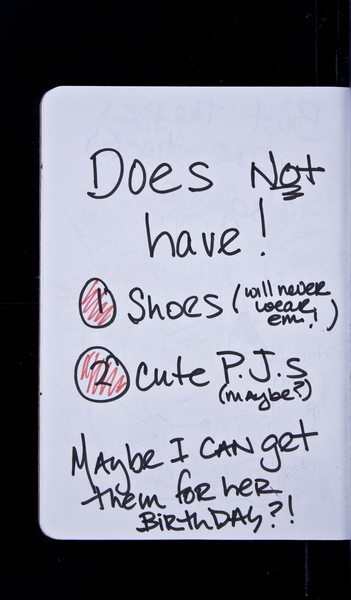 Does Not
have!
1 Shoes (will never
wear
em!)
2 Cute P.J.s
(maybe?)
Maybe I CAN get
them for her
BirthDAY?!